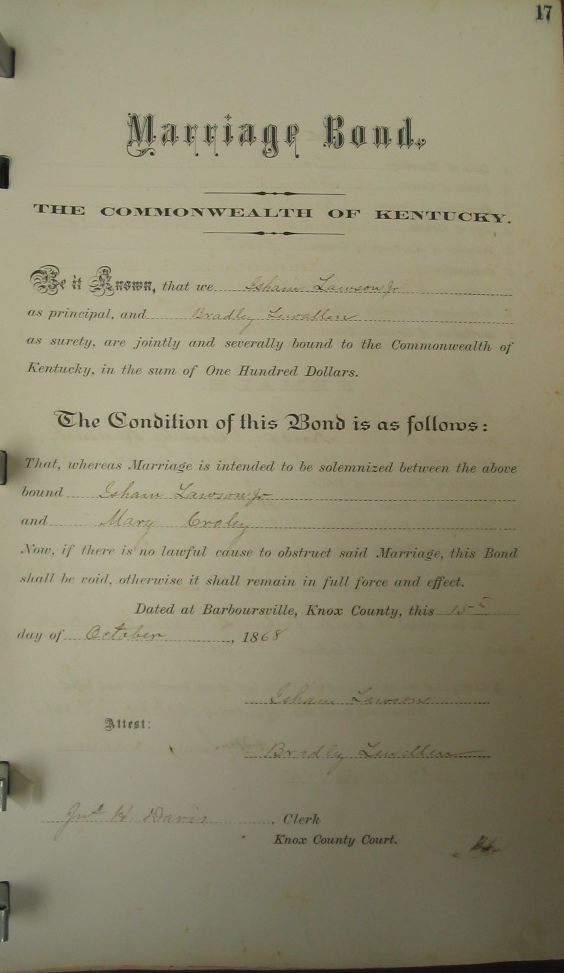 17
Marriage Bond.
THE COMMONWEALTH OF KENTUCKY.
Be it Known, that we Isham Lawson Jr
as principal, and Bradly Lewallen
as surety, are jointly and severally bound to the Commonwealth of
Kentucky, in the sum of One Hundred Dollars.
The Condition of this Bond is as follows:
That, whereas Marriage is intended to be solemnized between the above
bound Isham Lawson Jr
and Mary Croley
Now, if there is no lawful cause to obstruct said Marriage, this Bond
shall be void, otherwise it shall remain in full force and effect.
Dated at Barboursville, Knox County, this 15
day of October, 1868
Isham Lawson
Attest:
Bradly Lewallen
Jno H. Davis, Clerk
Knox County Court.